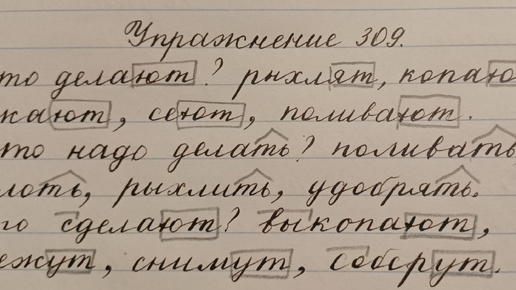 Упражнение 309.
то делают? рыхлят, копаю
кают, сеют, поливают.
то надо делать? поливать,
лоть, рыхлить, удобрять.
то сделают? выкопают,
ежут, снимут, соберут.